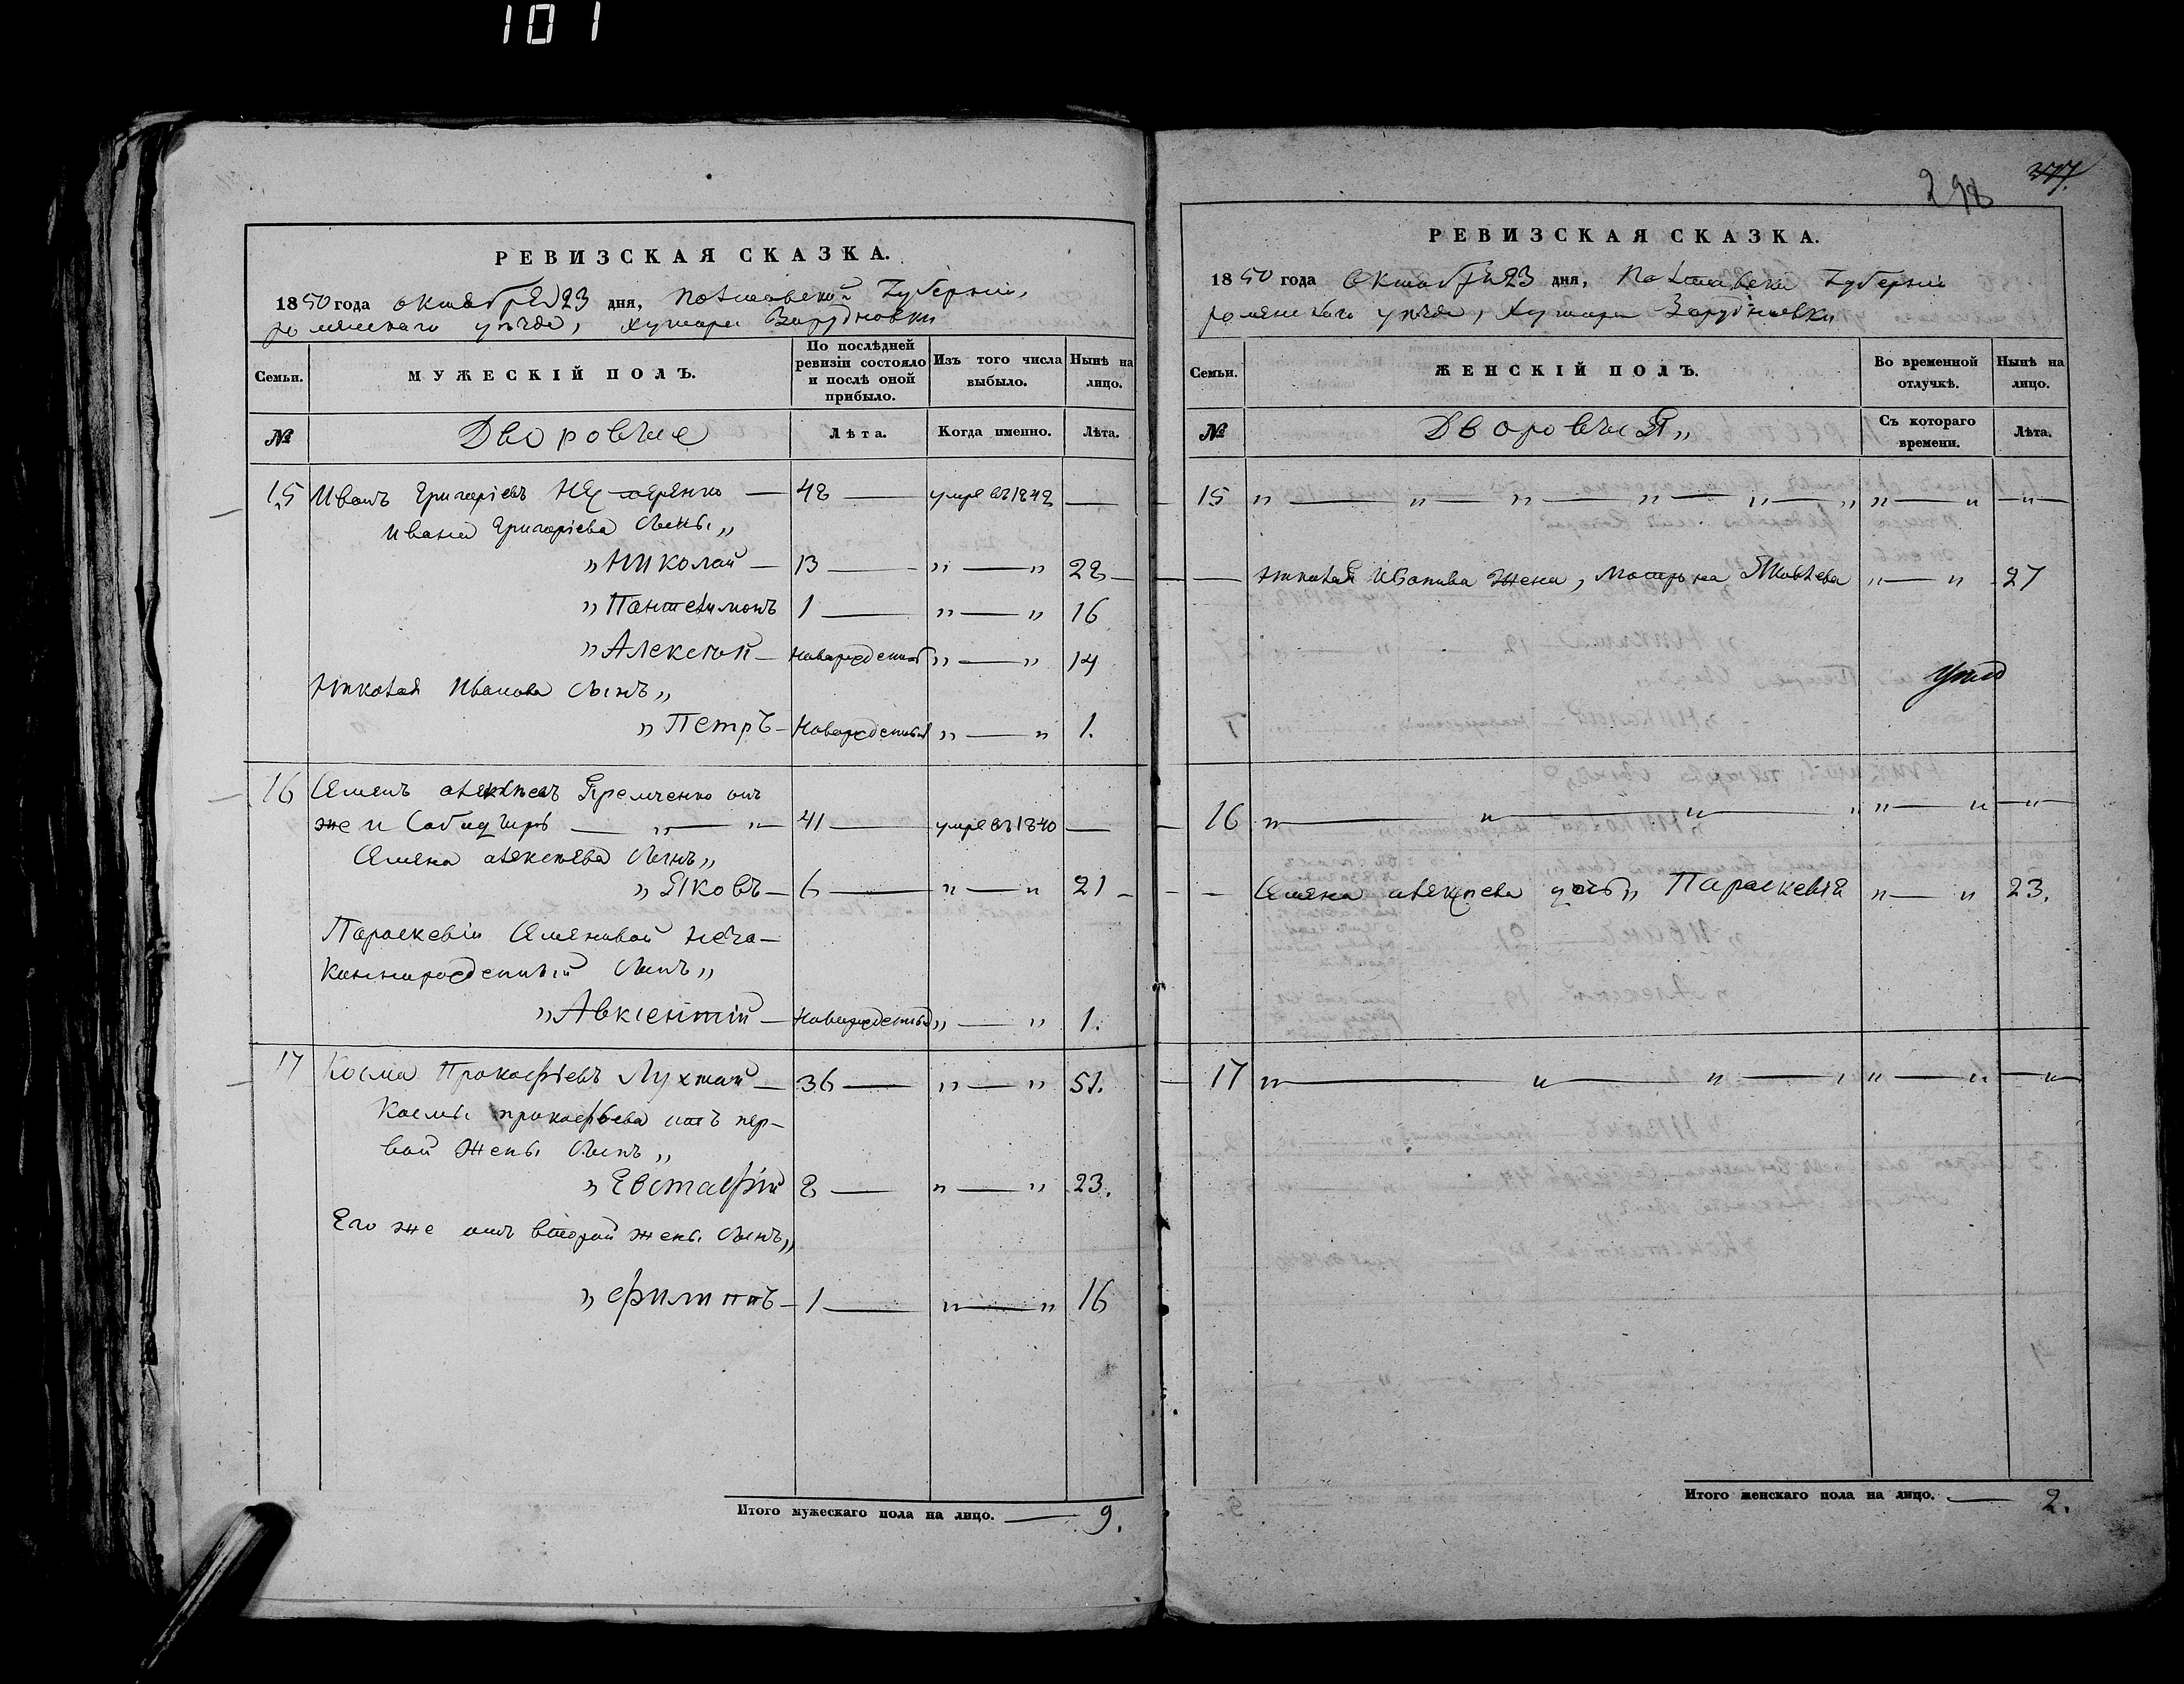 101
РЕВИЗСКАЯ СКАЗКА.
1850 года октября 23 дня, Полтавской Губерніи,
роменскаго уѣзда, хутора Зарудновки
Семьи.
МУЖЕСКІЙ ПОЛЪ.
По послѣдней ревизіи состояло и послѣ оной прибыло.
Изъ того числа выбыло.
Нынѣ на лицо.
№
Дворовые
Лѣта.
Когда именно.
Лѣта.
15 Иванъ Григоріевъ — 48 — умре въ 1842 —
Ивана Григоріева сыны „
„ Николай — 13 — „ — „ 28 —
„ Пантелимонъ 1 — „ — „ 16
„ Алексѣй — новорожденный „ — „ 14
Николая Иванова сынъ „
„ Петръ — Новорожденный „ — „ 1.
16 Семенъ Алексѣевъ Яремченко онъ
же и — „ — „ — 41 — умре въ 1840 —
Семена Алексѣева сынъ „
„ Яковъ — 6 — „ — „ 21 —
Параскевіи Семеновой неза-
коннорожденный сынъ „
„ Авксентій — Новорожденный „ — „ 1.
17 Косма Прокофіевъ Лухтай — 36 — „ — „ 51.
Космы прокофьева отъ пер-
вой жены сынъ „
„ Евстафій 8 — „ — „ 23.
Его же отъ второй жены сынъ „
„ Филиппъ — 1 — „ — „ 16
Итого мужескаго пола на лицо. — 9.
298
377.
РЕВИЗСКАЯ СКАЗКА.
1850 года Октября 23 дня, Полтавской Губерніи
роменскаго уѣзда, Хутора Зарудновки
Семьи.
ЖЕНСКІЙ ПОЛЪ.
Во временной отлучкѣ.
Нынѣ на лицо.
№
Дворовыя „
Съ котораго времени.
Лѣта.
15 „ — „ — „ — „ — „ — „ „ — „ — „ —
— Николая Иванова жена, Мотрона Яковлева „ — „ 27
16 „ — „ — „ — „ „ — „ — „
— Семена Алексѣева дочь „ Параскевія „ — „ 23.
17 „ — „ — „ — „ „ — „ — „
Итого женскаго пола на лицо. — 2.